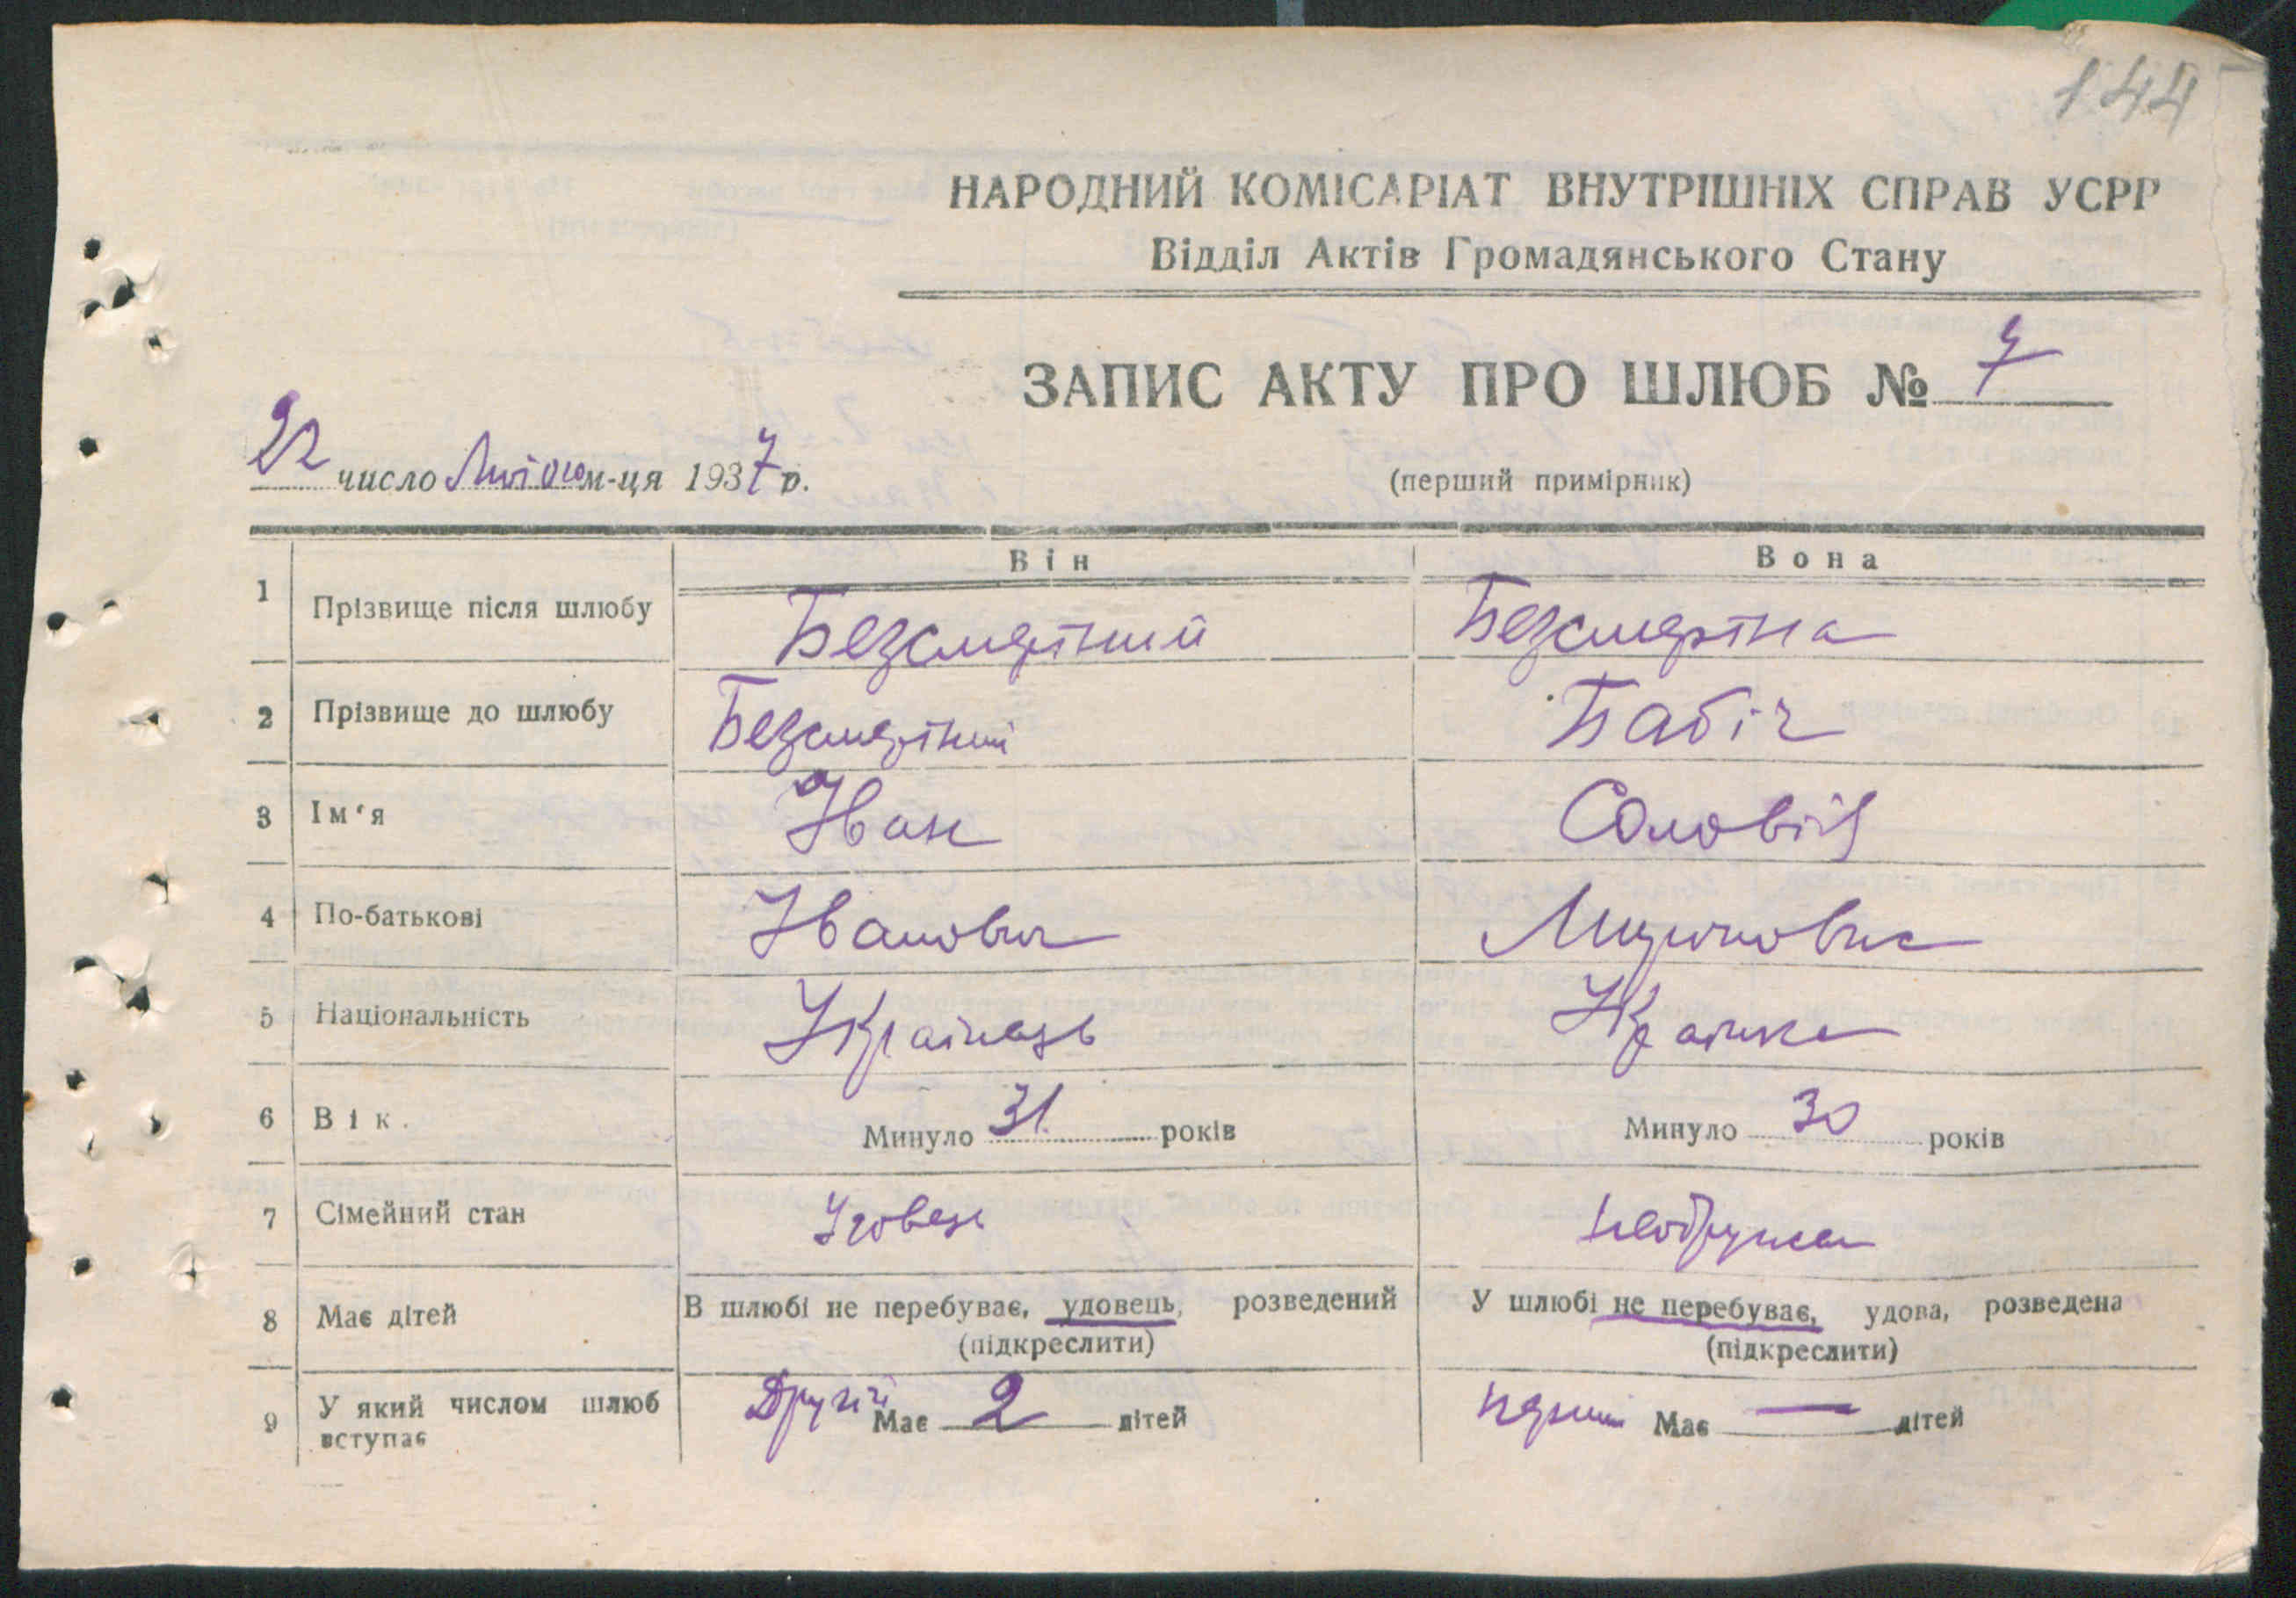 144
НАРОДНИЙ КОМІСАРІАТ ВНУТРІШНІХ СПРАВ УСРР
Відділ Актів Громадянського Стану
ЗАПИС АКТУ ПРО ШЛЮБ № 7
22 число Лютого м-ця 1937 р.
(перший примірник)
Він Вона
1 Прізвище після шлюбу Безсмертний Безсмертна
2 Прізвище до шлюбу Безсмертний Бабіч
3 Ім‘я Іван Соловія
4 По-батькові Іванович
5 Національність Українець Українка
6 Вік. Минуло 31 років Минуло 30 років
7 Сімейний стан Удовець
8 Має дітей В шлюбі не перебуває, удовець, розведений У шлюбі не перебуває, удова, розведена
(підкреслити) (підкреслити)
9 У який числом шлюб вступає Другий Має 2 дітей перший Має — дітей